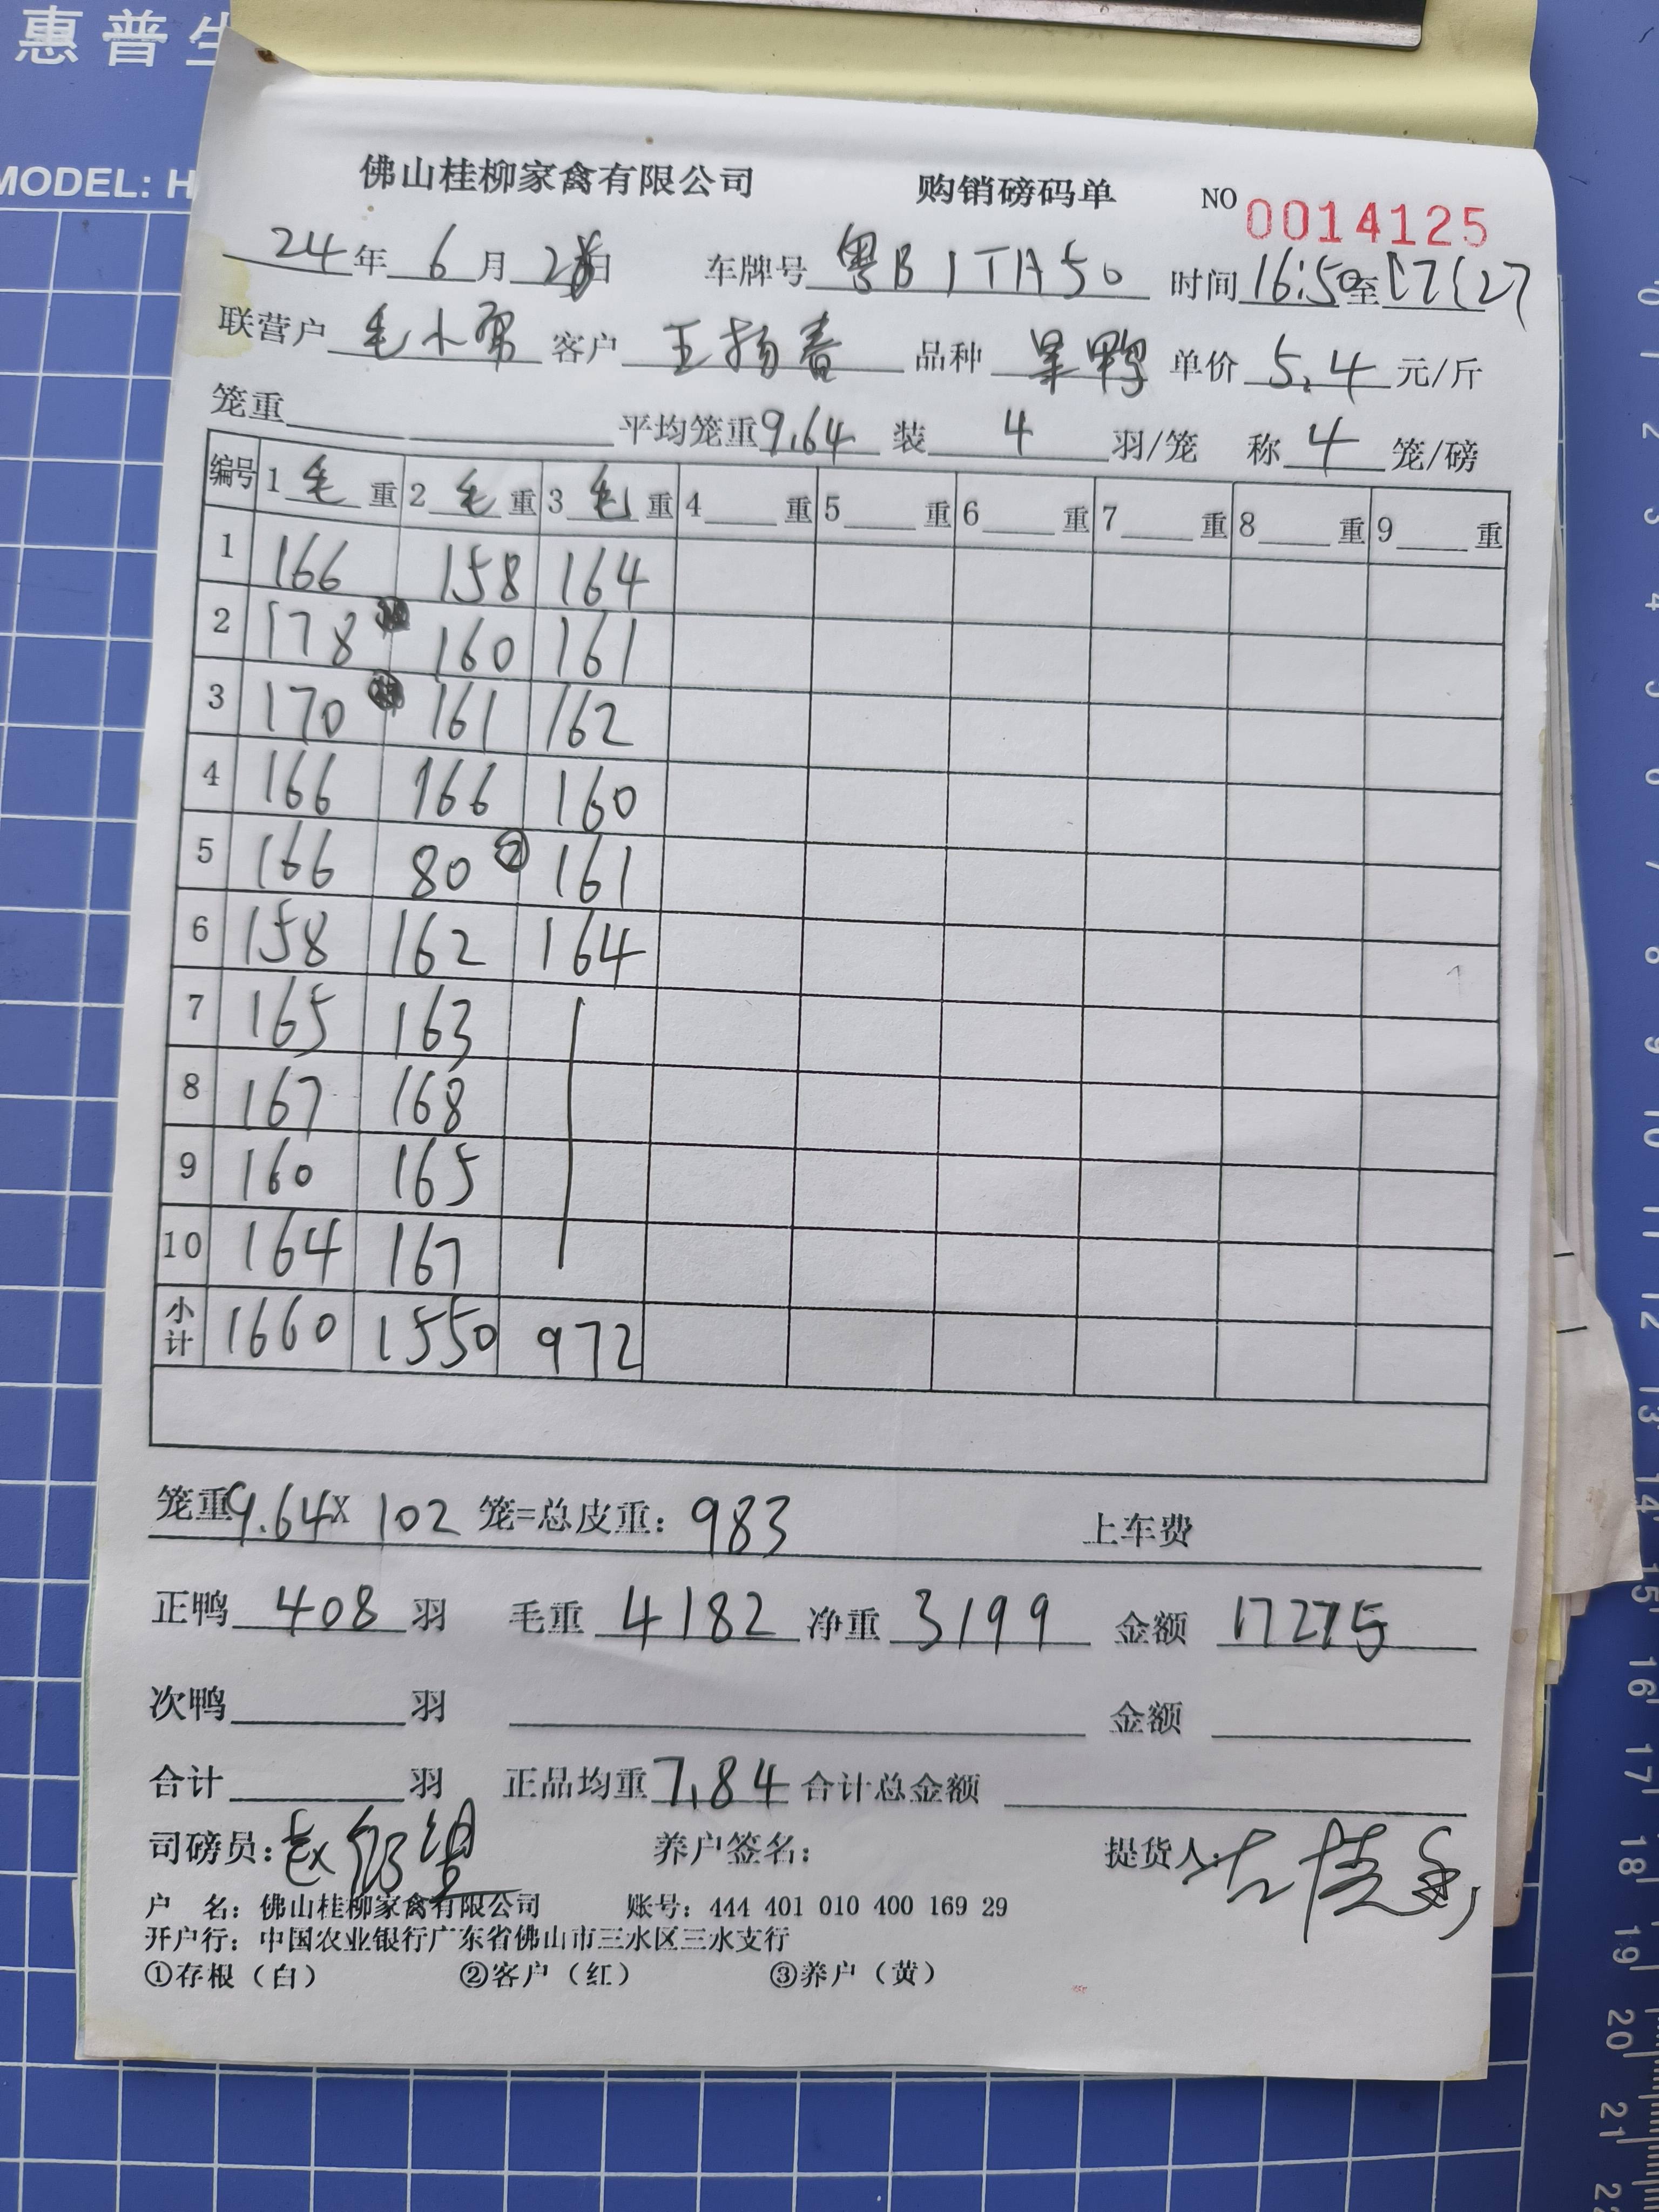 惠普生
MODEL: H
佛山桂柳家禽有限公司 购销磅码单 NO 0014125
24年6月28日 车牌号 粤B1TA50 时间16:50至17:27
联营户 毛小 客户 王扬春 品种 果鸭 单价 5.4 元/斤
笼重 平均笼重9.64 装 4 羽/笼 称 4 笼/磅
编号 1 毛 重 2 毛 重 3 毛 重 4 重 5 重 6 重 7 重 8 重 9 重
1 166 158 164
2 178 160 161
3 170 161 162
4 166 166 160
5 166 80 ② 161
6 158 162 164
7 165 163
8 167 168
9 160 165
10 164 167
小计 1660 1550 972
笼重9.64X 102 笼=总皮重: 983 上车费
正鸭 408 羽 毛重 4182 净重 3199 金额 17275
次鸭 羽 金额
合计 羽 正品均重7.84 合计总金额
司磅员: 赵 养户签名: 提货人:
户 名: 佛山桂柳家禽有限公司 账号: 444 401 010 400 169 29
开户行: 中国农业银行广东省佛山市三水区三水支行
①存根(白) ②客户(红) ③养户(黄)
0
1
2
3
4
5
6
7
8
9
10
11
12
13
14
15
16
17
18
19
20
21